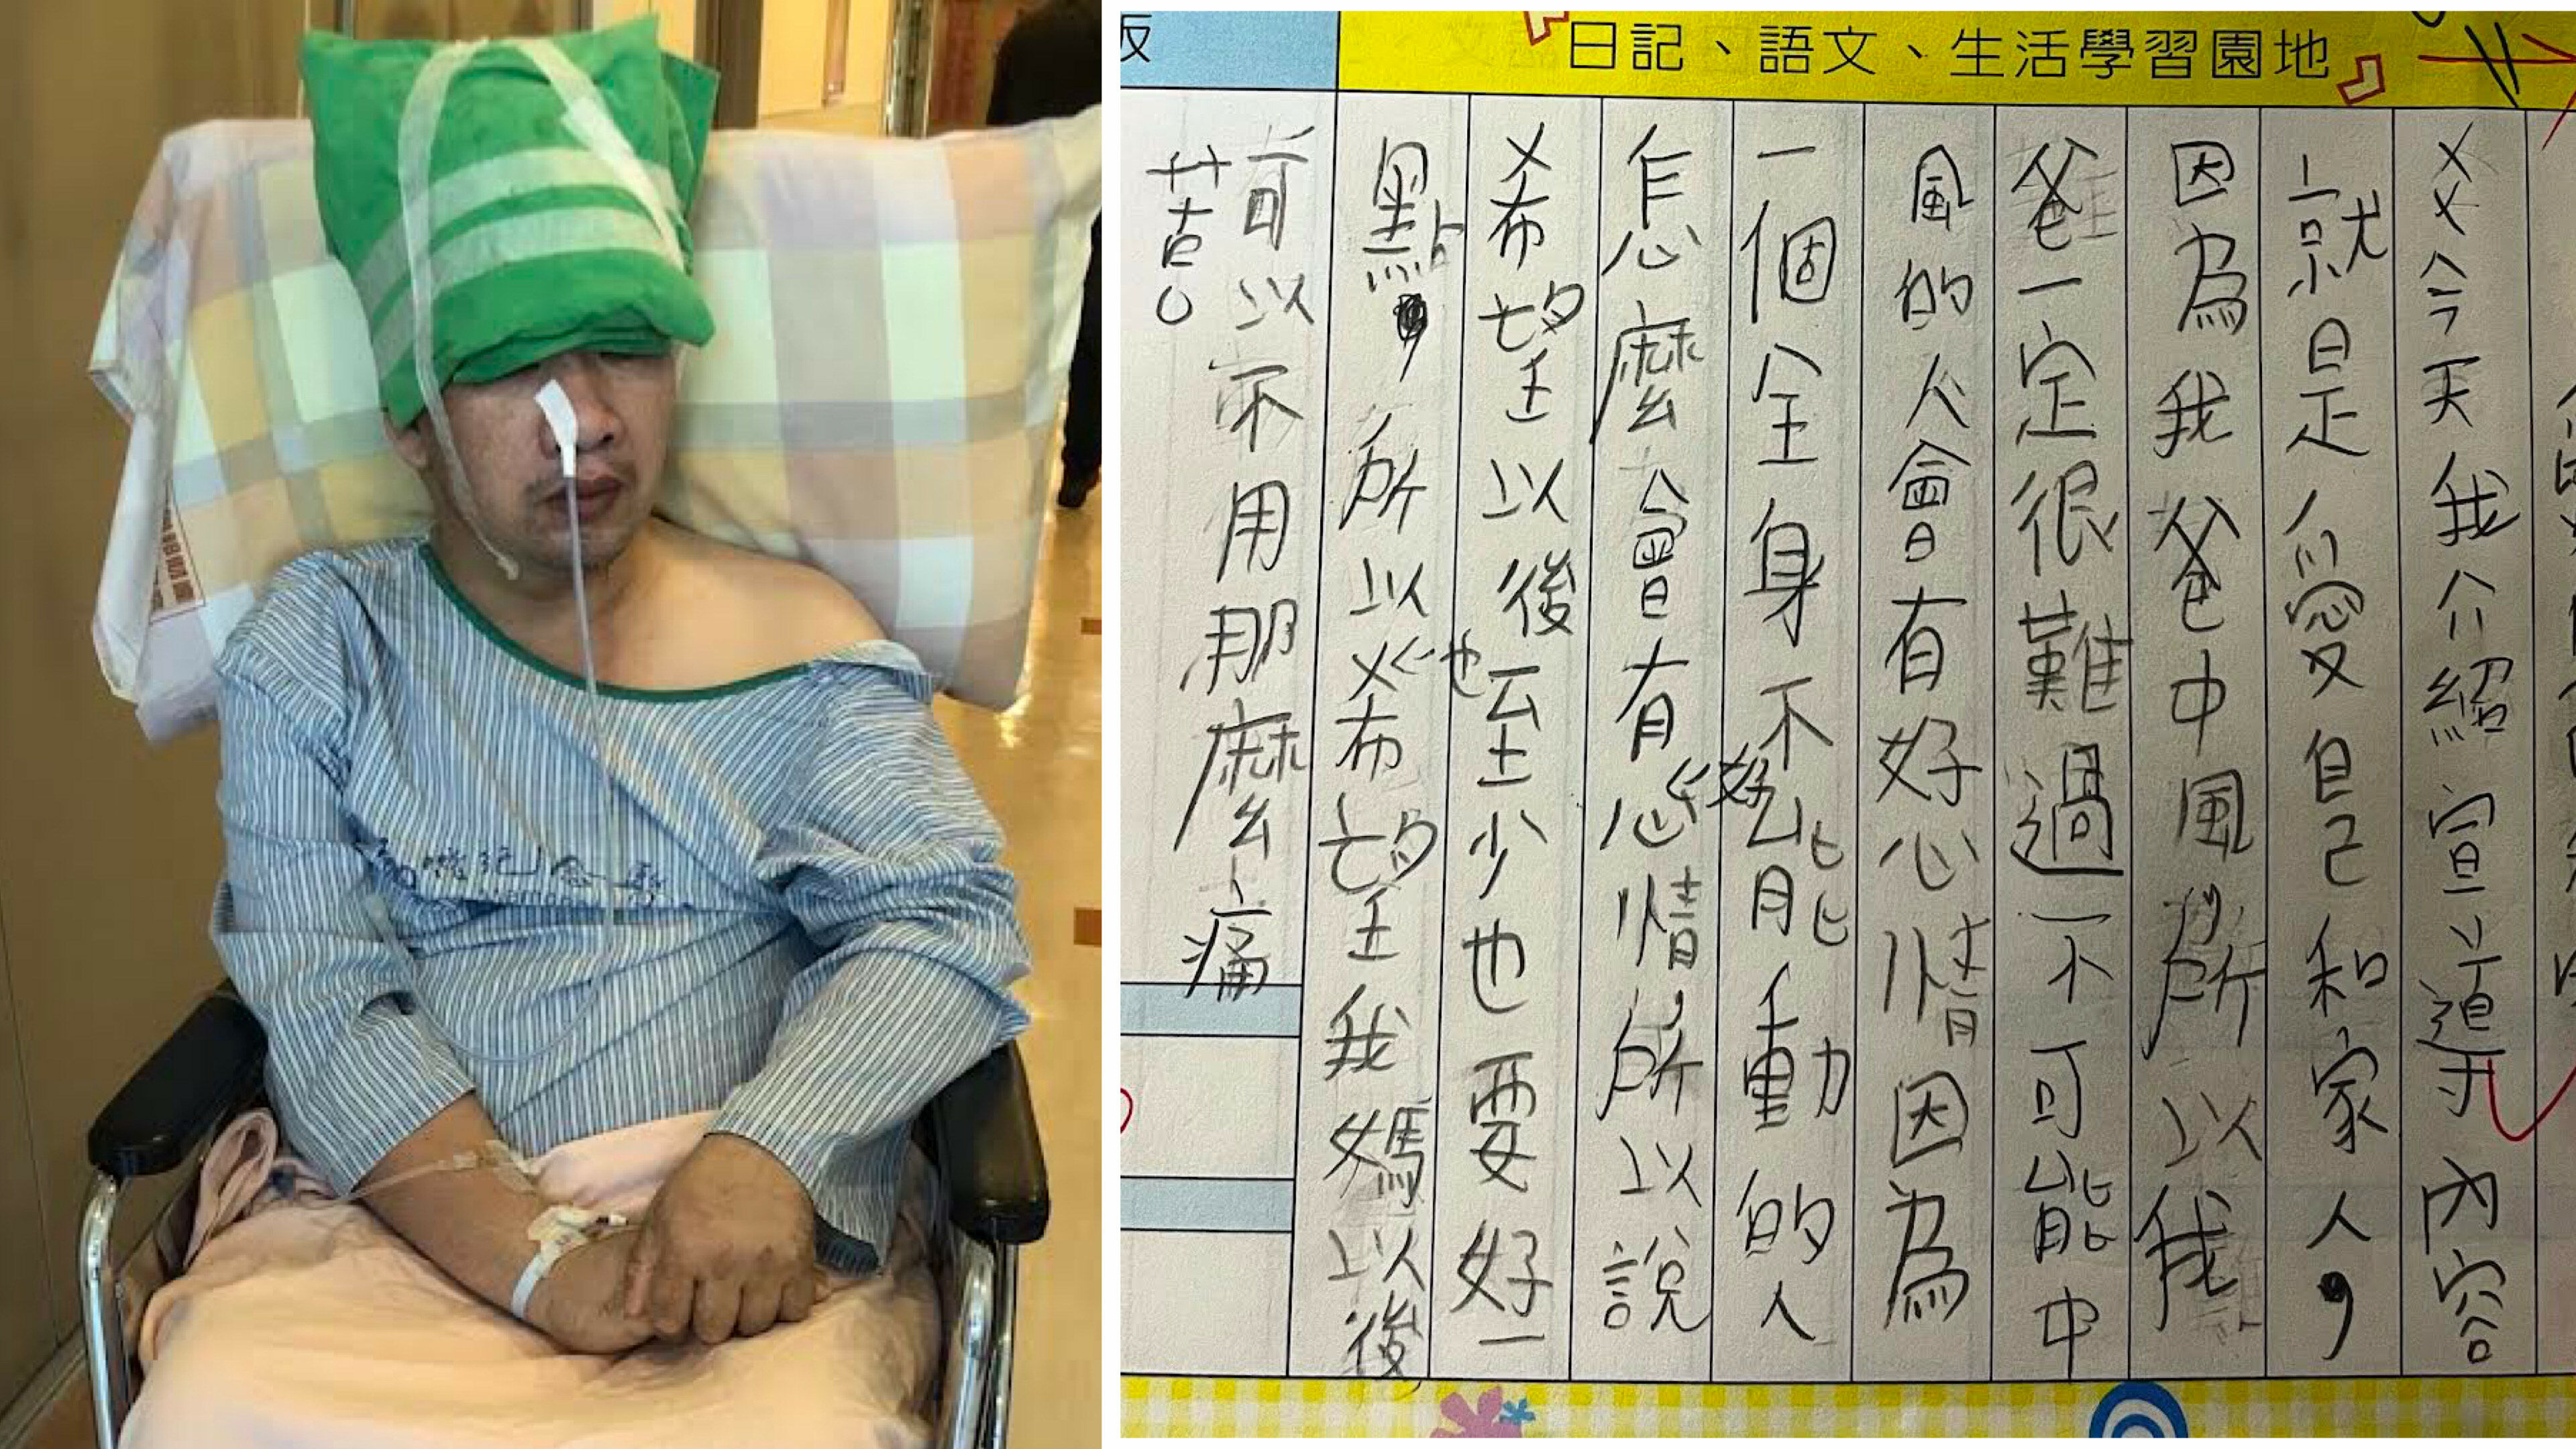 日記、語文、生活學習園地
今天我介紹宣導內容
就是愛自己和家人，
因為我爸中風所以我
爸一定很難過一不可能中
風的人會有好心情因為
一個全身不能動的人
怎麼會有好心情所以說
希望以後至少也要好一
點，所以也希望我媽以後
可以不用那麼痛
苦。